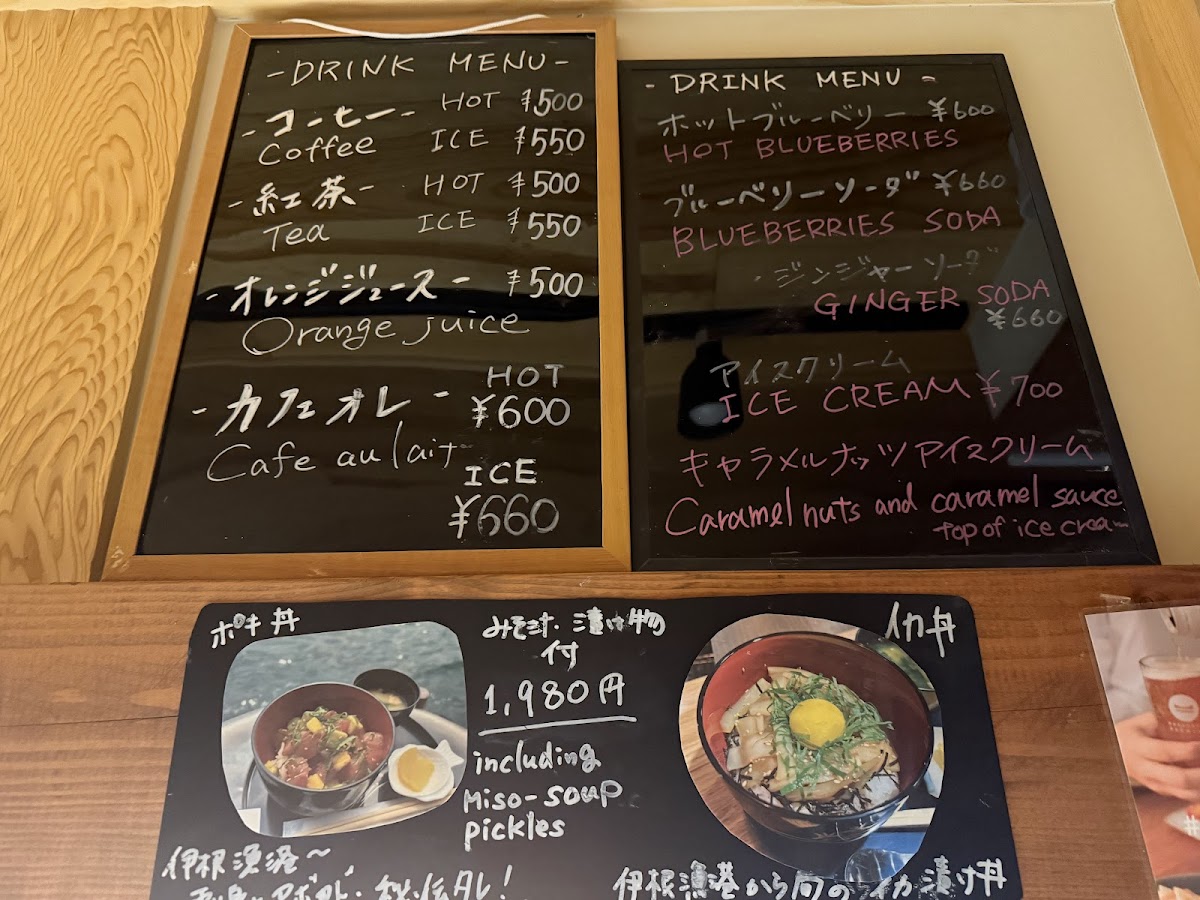 -DRINK MENU-
-コーヒー- HOT ¥500
Coffee ICE ¥550
-紅茶- HOT ¥500
Tea ICE ¥550
-オレンジジュース- ¥500
Orange juice
-カフェオレ- HOT ¥600
Cafe au lait
ICE
¥660
- DRINK MENU -
ホットブルーベリー ¥600
HOT BLUEBERRIES
ブルーベリーソーダ ¥660
BLUEBERRIES SODA
・ジンジャーソーダ
GINGER SODA
¥660
アイスクリーム
ICE CREAM ¥700
キャラメルナッツアイスクリーム
Caramel nuts and caramel sauce
top of ice cream
ポキ丼
みそ汁・漬け物
付
1,980円
including
Miso-soup
pickles
イカ丼
伊根漁港〜
秘伝タレ!
伊根漁港から
イカ漬け丼